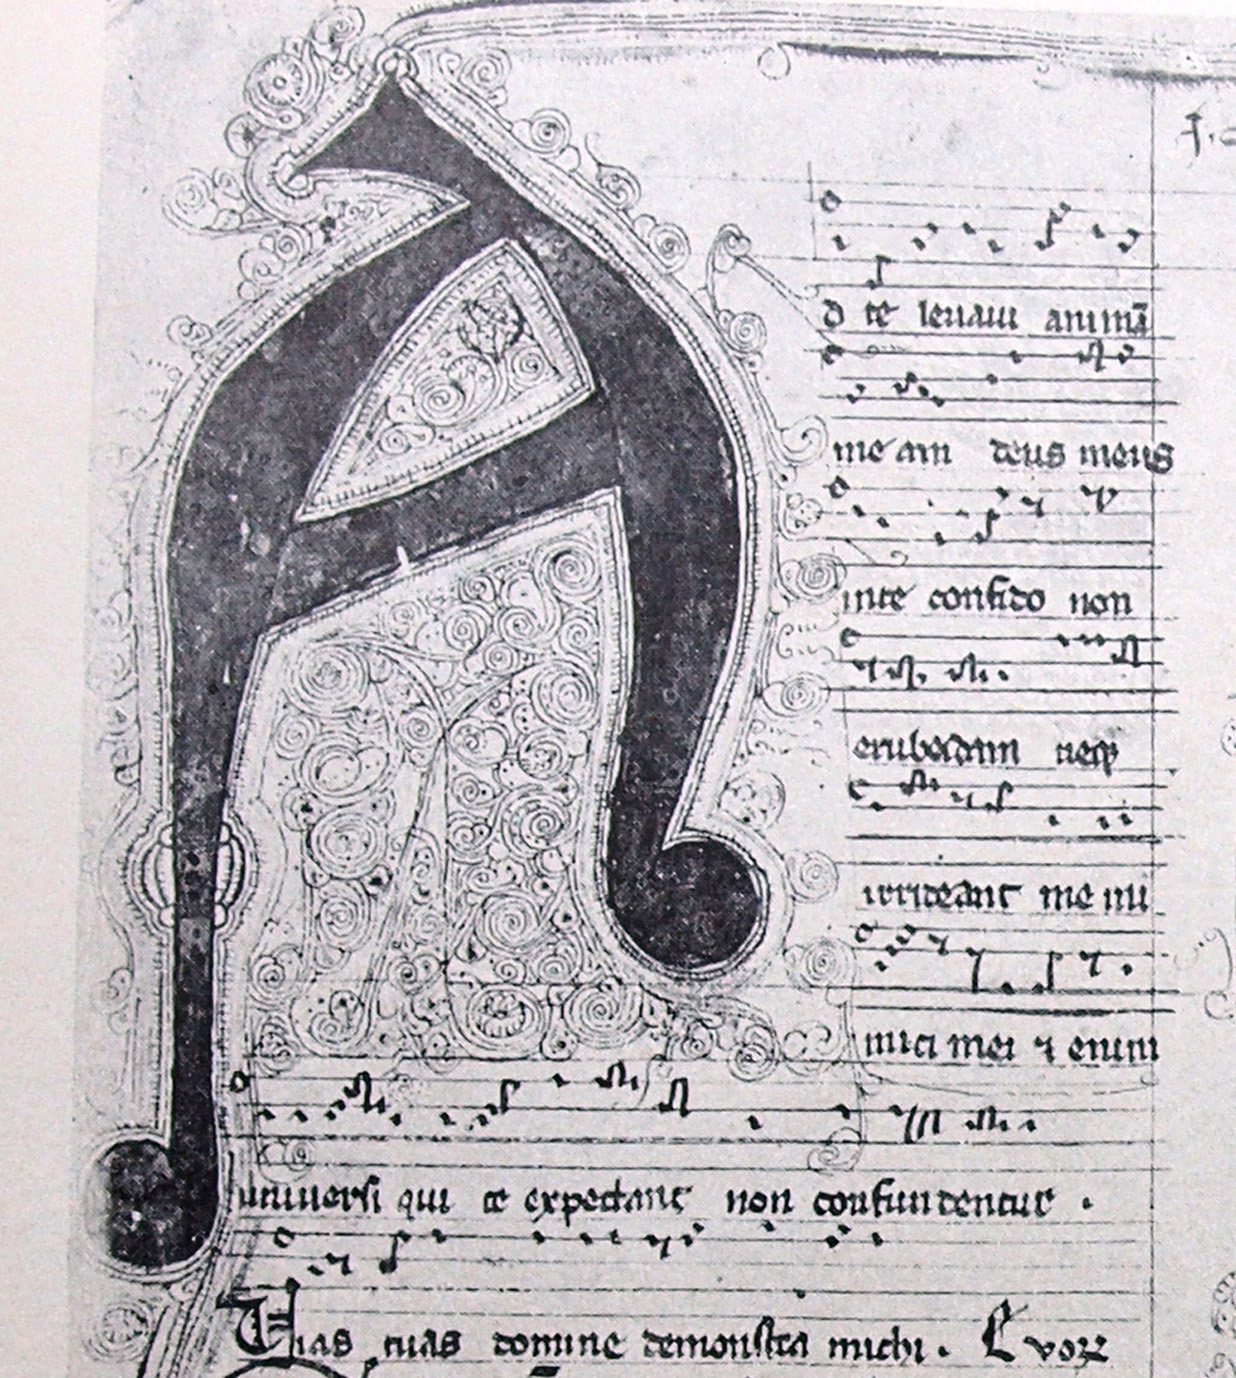 A
d te leuaui animā
me am deus meus
inte confido non
erubescam neqꝫ
irrideant me ini
mici mei ⁊ enim
uniuersi qui te expectant non confundentur .
Uias tuas domine demonstra michi . E vovꝫ